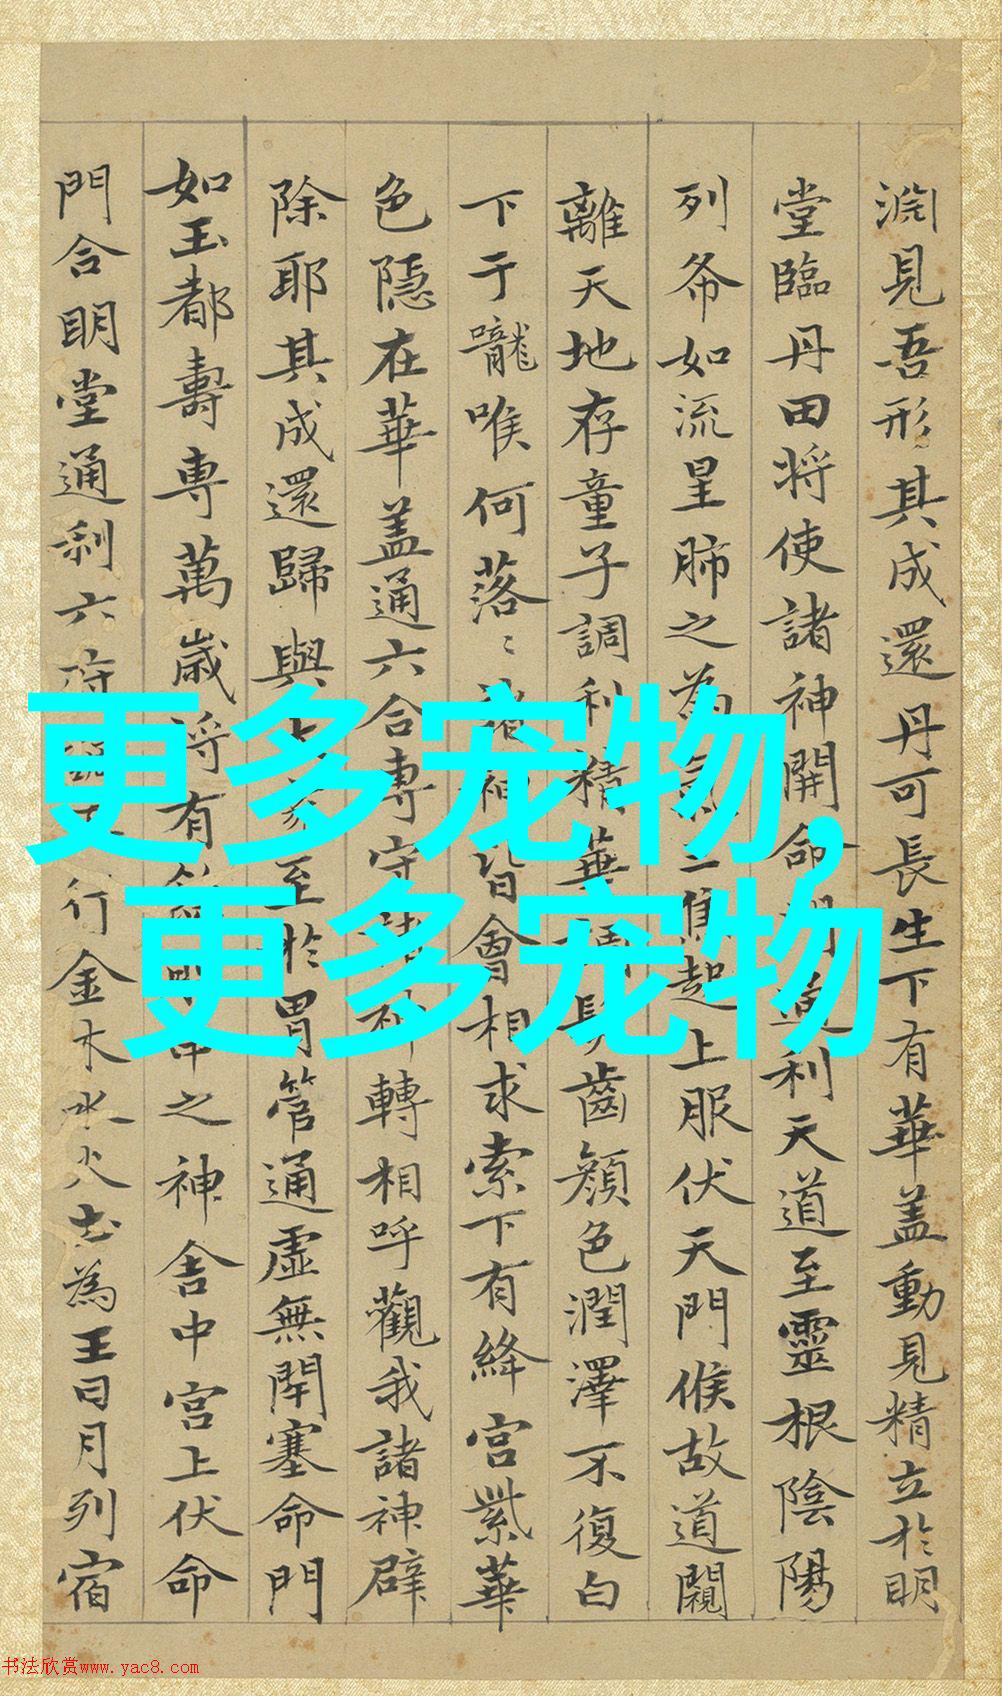 更多宠物,
更多宠物
淵見吾形其成還丹可長生下有華盖動見精立於明
堂臨丹田将使諸神開命利天道至靈根陰陽
列希如流星肺之為焦起上服伏天門候故道闚
離天地存童子調利精華齒顔色潤澤不復白
下于嚨喉何落〻諸神皆會相求索下有絳宮紫華
色隱在華盖通六合専守轉相呼觀我諸神辟
除耶其成還歸與至於胃管通虛無閇塞命門
如玉都壽専萬歲将有之神舍中宮上伏命
門合明堂通利六府行金木水火土為王日月列宿
书法欣赏www.yac8.com